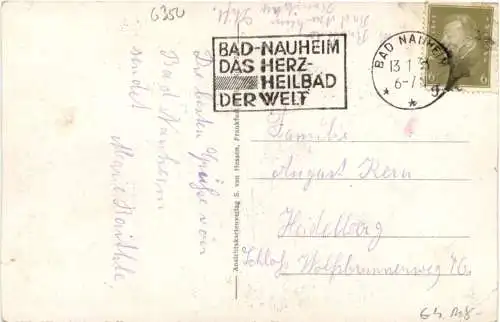 6350
BAD-NAUHEIM
DAS HERZ-
HEILBAD
DER WELT
BAD NAUHEIM
13 1 3
6-7
6
Die besten Grüße von
Bad Nauheim
sendet
Marie
Ansichtskartenverlag S. van Hessen, Frankfurt
Familie
August Kern
Heidelberg
Schloß Wolfsbrunnerweg